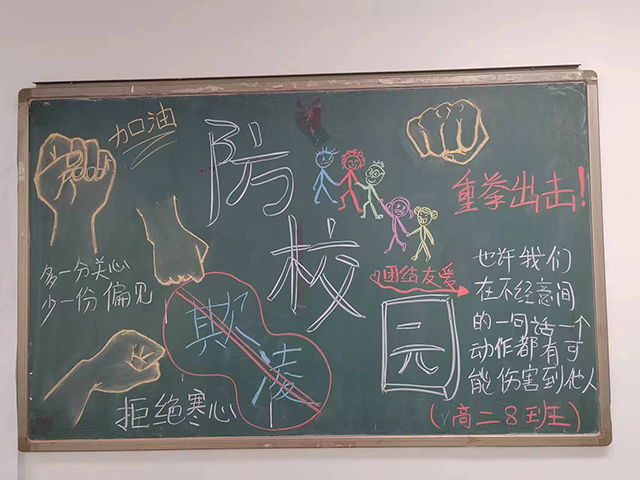 加油
防校园
欺凌
重拳出击!
多一分关心
少一份偏见
团结友爱
拒绝寒心
也许我们
在不经意间
的一句话一个
动作都有可
能伤害到他人
(高二8班)